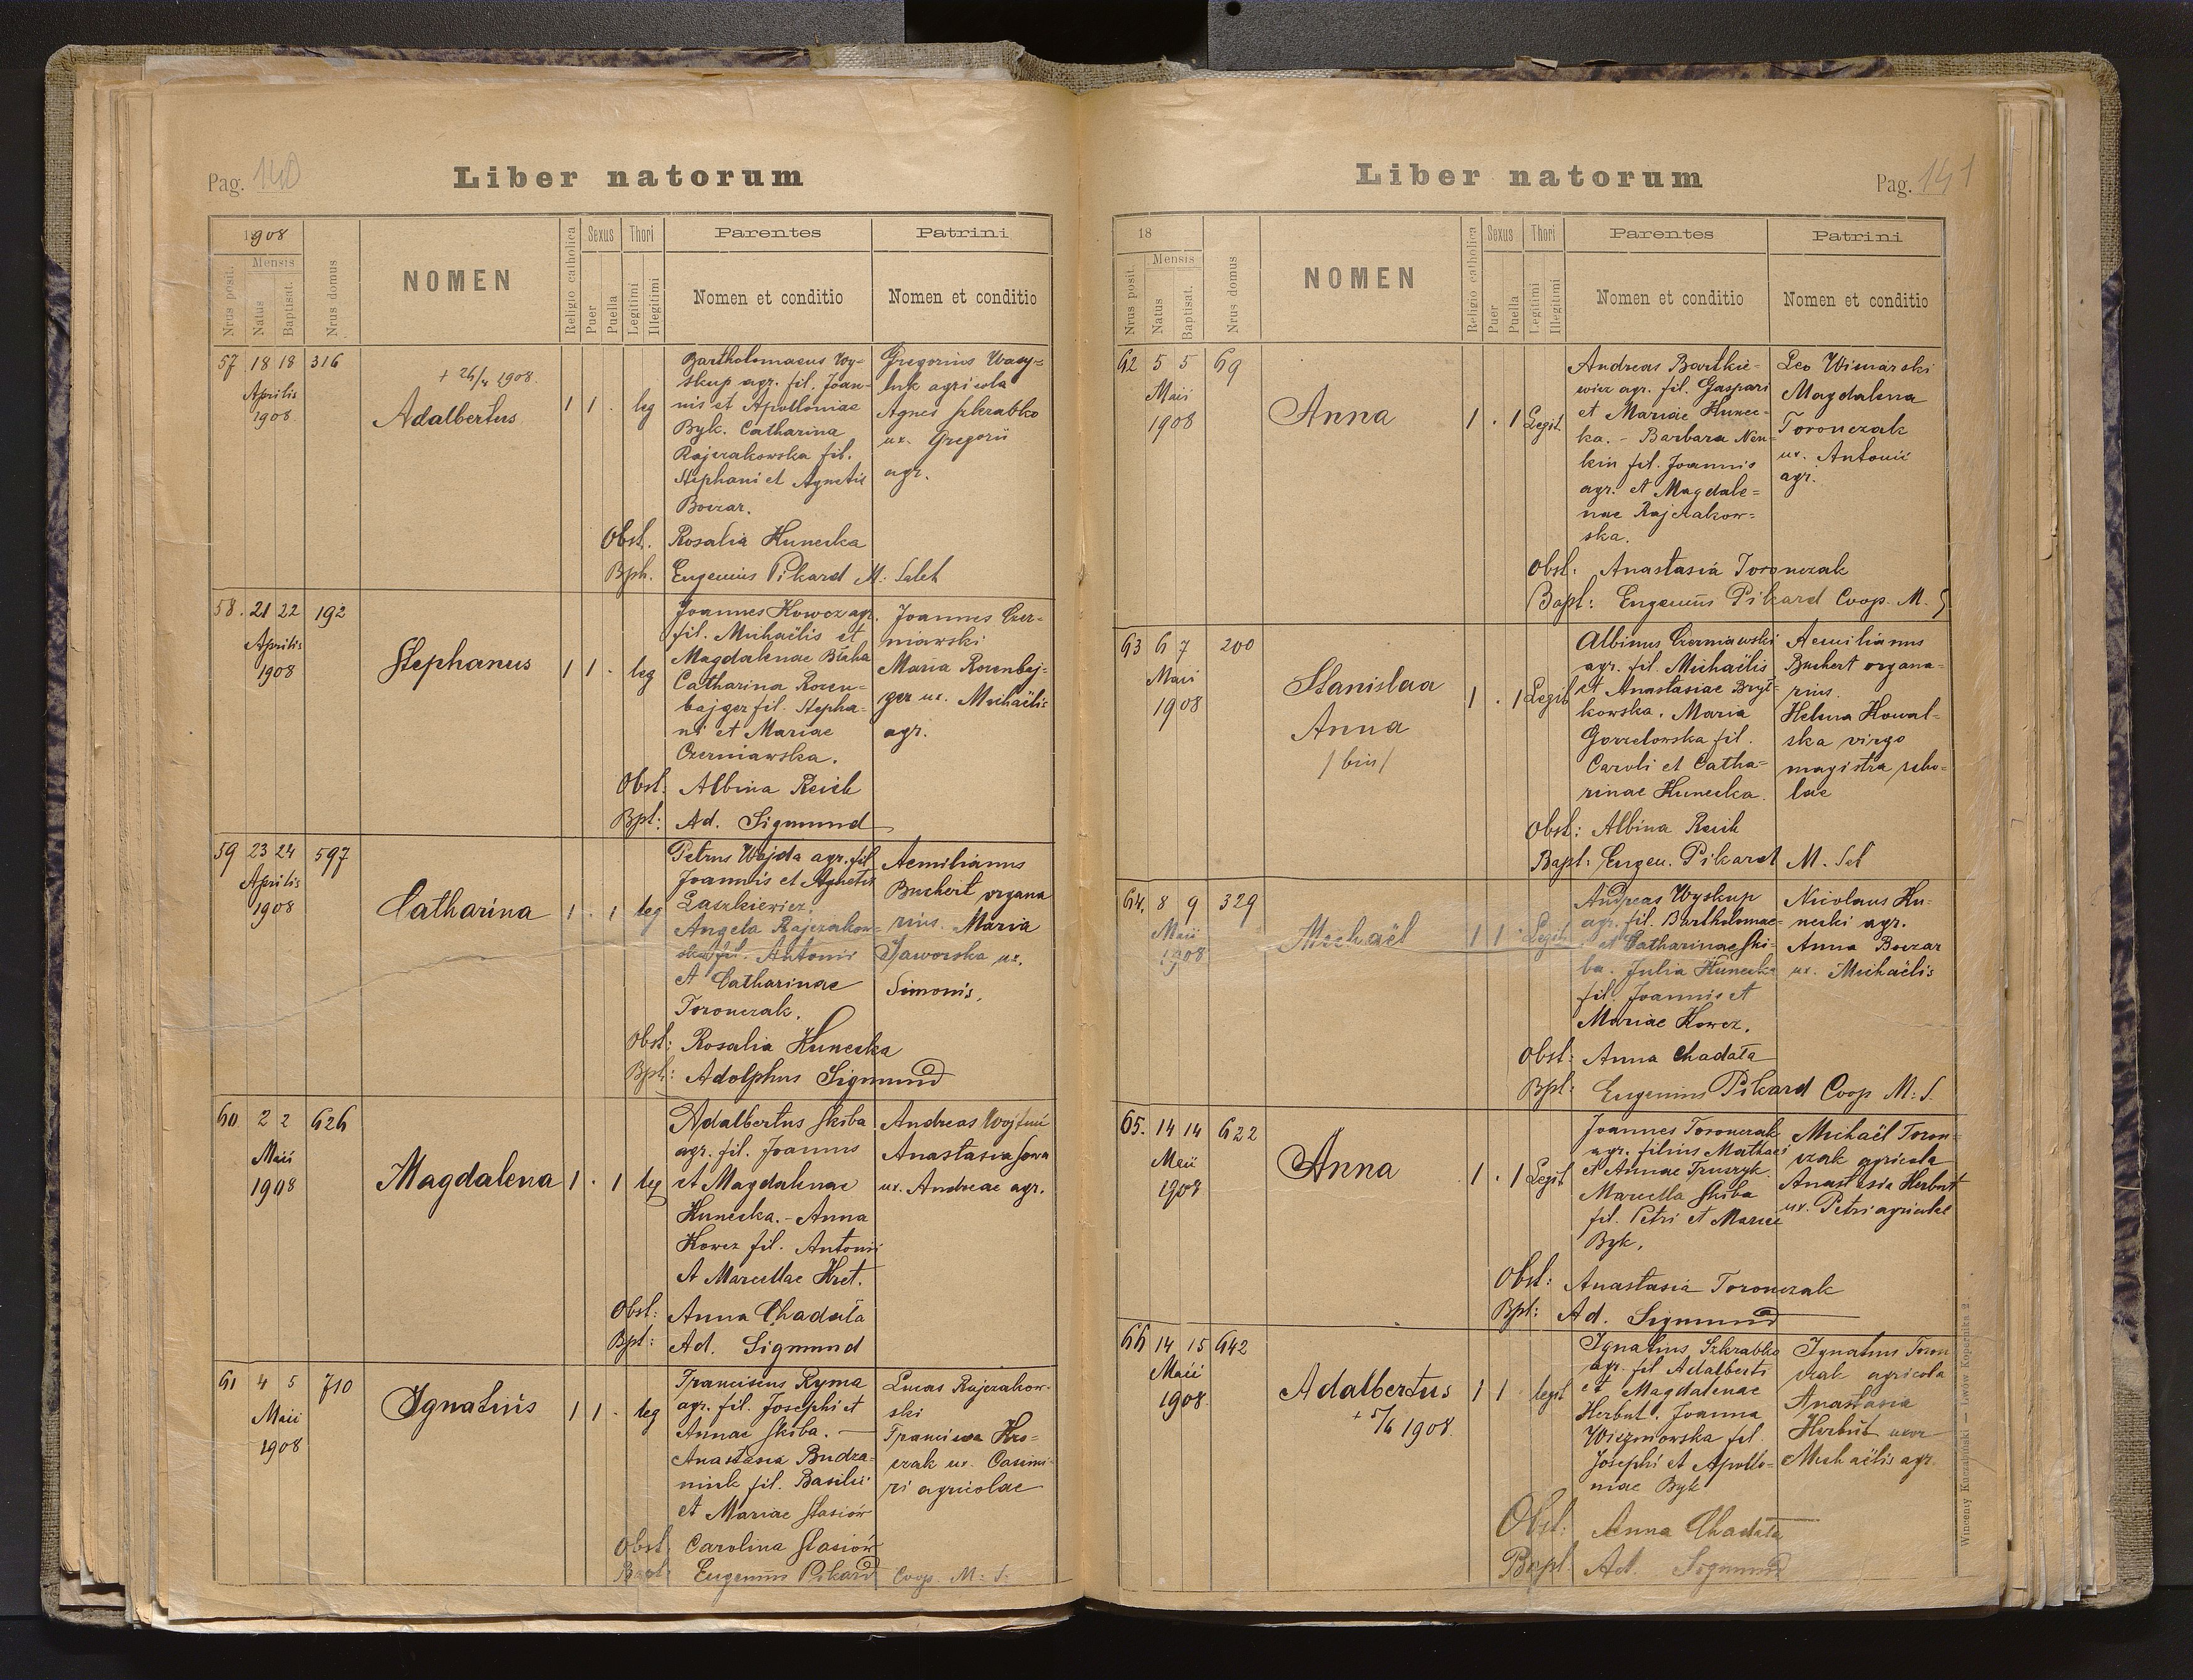 Pag. 140
Liber natorum
1908
Nrus posit.
Mensis
Natus
Baptisat.
Nrus domus
NOMEN
Religio catholica
Sexus
Puer
Puella
Thori
Legitimi
Illegitimi
Parentes
Nomen et conditio
Patrini
Nomen et conditio
57 18 18 316
Aprilis
1908
+ 24/4 1908.
Adalbertus
1 1 . leg
Bartholomaeus Wy-
skup agr. fil. Joan-
nis et Apolloniae
Byk. Catharina
Rajczakowska fil.
Stephani et Agnetis
Boczar.
Gregorius Wasy-
luk agricola
Agnes Szkrabko
ux. Gregorii
agr.
Obst. Rosalia Hunecka
Bpt. Eugenius Pikard M: Salet
58. 21 22 192
Aprilis
1908
Stephanus
1 1 . leg
Joannes Kowcz agr.
fil. Michaëlis et
Magdalenae Błaha
Catharina Rozen-
bajger fil. Stepha-
ni et Mariae
Czerniawska.
Joannes Czer-
niawski
Maria Rozenbaj-
ger ux. Michaëlis
agr.
Obst: Albina Reich
Bpt: Ad. Sigmund
59 23 24 597
Aprilis
1908
Catharina
1 . 1 leg
Petrus Wajda agr. fil
Joannis et Agnetis
Laszkiewicz.
Angela Rajczakow-
ska fil. Antonii
et Catharinae
Toronczak.
Aemilianus
Buchert organa
rius. Maria
Jaworska ux.
Simonis.
Obst: Rosalia Hunecka
Bpt: Adolphus Sigmund
60 2 2 626
Maii
1908
Magdalena
1 . 1 leg
Adalbertus Skiba
agr. fil. Joannis
et Magdalenae
Hunecka. - Anna
Kowcz fil. Antonii
et Marcellae Kret.
Andreas
Anastasia Sowa
ux. Andreae agr.
Obst: Anna Chadała
Bpt: Ad. Sigmund
61 4 5 710
Maii
1908
Ignatius
1 1 . leg
Franciscus Ryma
agr. fil. Josephi et
Annae Skiba. —
Anastasia Budza-
niuk fil. Basilii
et Mariae Stasiów
Lucas Rajczakow-
ski
Francisca Hro-
czak ux. Casimi-
ri agricolae
Obst: Carolina Stasiów
Bapt: Eugenius Pikard Coop. M: S.
Liber natorum
Pag. 141
18
Nrus posit.
Mensis
Natus
Baptisat.
Nrus domus
NOMEN
Religio catholica
Sexus
Puer
Puella
Thori
Legitimi
Illegitimi
Parentes
Nomen et conditio
Patrini
Nomen et conditio
62 5 5 69
Maii
1908
Anna
1 . 1 Legit.
Andreas Bartkie-
wicz agr. fil. Gaspari
et Mariae Hunec-
ka. - Barbara Nen-
kin fil. Joannis
agr. et Magdale=
nae Rajczakow=
ska.
Leo Winiarski
Magdalena
Toronczak
ux. Antonii
agr.
Obst: Anastasia Toronczak
Bapt: Eugenius Pikard Coop. M. S
63 6 7 200
Maii
1908
Stanislaa
Anna
/bin/
1 . 1 Legit
Albinus Czerniawski
agr. fil. Michaëlis
et Anastasiae Bryt-
kowska. Maria
Gorzelowska fil.
Caroli et Catha-
rinae Hunecka.
Aemilianus
Buchert organa-
rius.
Helena Kowal-
ska virgo
magistra scho-
lae
Obst: Albina Reich
Bapt: Eugen. Pikard M. Sal
64. 8 9 329
Maii
1908
Michaël
1 1 . Legit.
Andreas Wyskup
agr. fil. Bartholomae-
i et Catharinae Ski-
ba. Julia Hunecka
fil. Joannis et
Mariae Kowcz.
Nicolaus Hu-
necki agr.
Anna Boczar
ux. Michaëlis
Obst: Anna Chadała
Bpt: Eugenius Pikard Coop M: S.
65. 14 14 622
Maii
1908
Anna
1 . 1 Legit
Joannes Toronczak
agr. filius Mathaei
et Annae Truszyk.
Marcella Skiba
fil. Petri et Mariae
Byk.
Michaël Toron-
czak agricola
Anastasia Herbut
ux. Petri agricolae
Obst: Anastasia Toronczak
Bpt: Ad. Sigmund
66 14 15 642
Maii
1908
Adalbertus
+ 5/6 1908.
1 1 . legit
Ignatius Szkrabko
agr. fil Adalberti
et Magdalenae
Herbut. Joanna
Wiszniowska fil.
Josephi et Apollo-
niae Byk
Ignatius Toron
czak agricola
Anastasia
Herbut uxor
Michaëlis agr.
Obst: Anna Chadała
Bapt. Ad. Sigmund
Wincenty Kuczabiński — Lwów Kopernika 2.